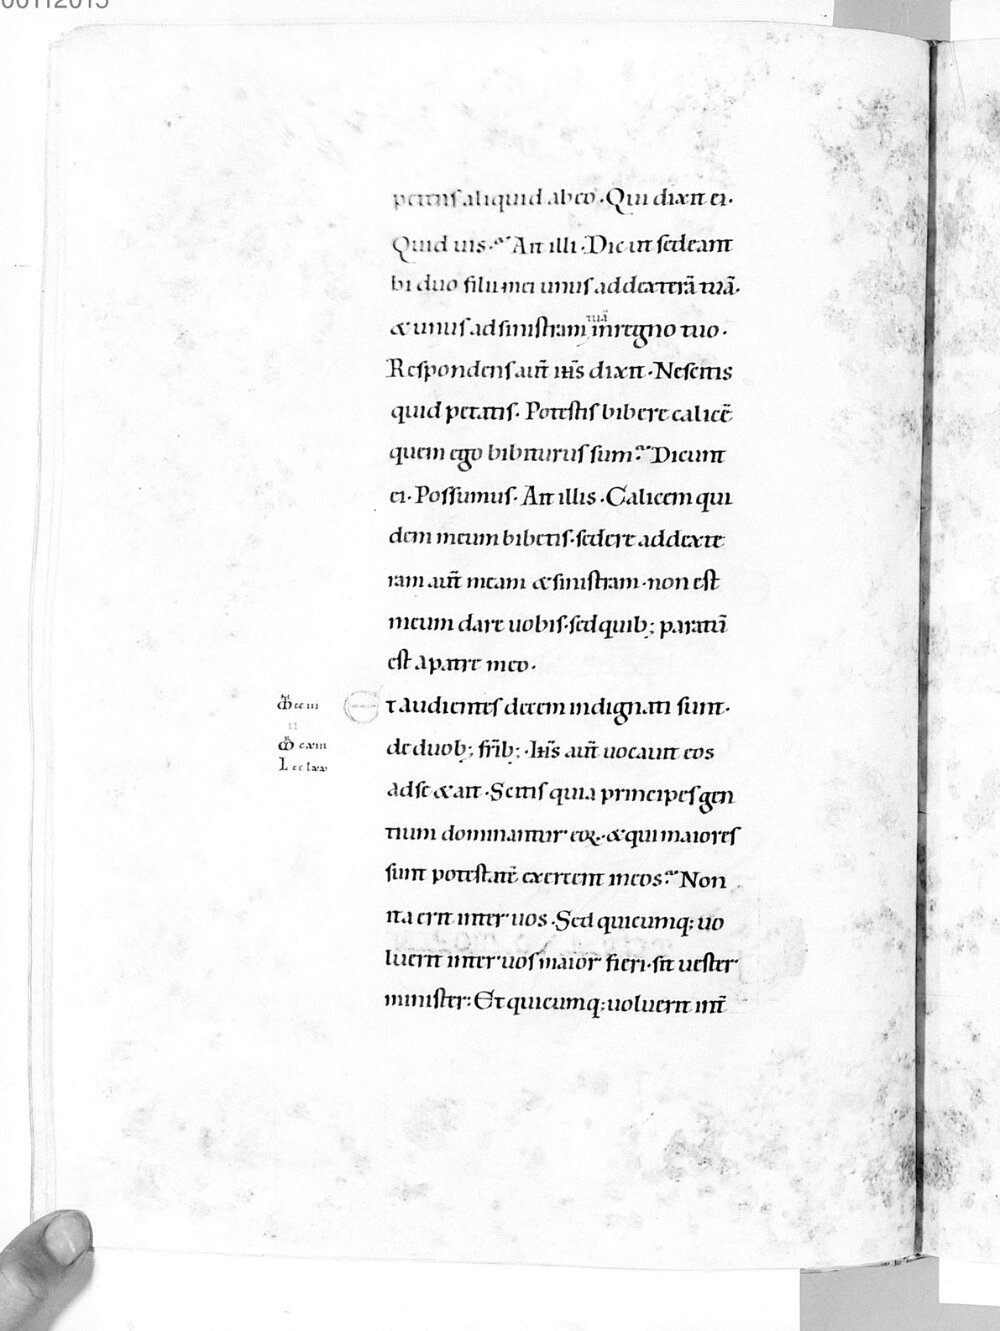 petens aliquid ab eo · Qui dixit ei ·
Quid uis · Ait illi · Dic ut sedeant
hi duo filii mei unus ad dexterā tuā ·
& unus ad sinistram tuā in regno tuo ·
Respondens aut̄ ih̄s dixit · Nescitis
quid petatis · Potestis bibere calicē
quem ego bibiturus sum ? Dicunt
ei · Possumus · Ait illis · Calicem qui
dem meum bibetis · sedere ad dexte
ram aut̄ meam & sinistram · non est
meum dare uobis · sed quib; paratū
est a patre meo ·
t audientes decem indignati sunt ·
de duob; fr̄ib; · Ih̄s aut̄ uocauit eos
ad se & ait · Scitis quia principes gen
tium dominantur eoꝝ · & qui maiores
sunt potestatē exercent in eos ? Non
ita erit inter uos · Sed quicumq; uo
luerit inter uos maior fieri · sit uester
minister : Et quicumq; uoluerit int̄
M̄ cciii
ii
M̄ cxiii
L cclxx